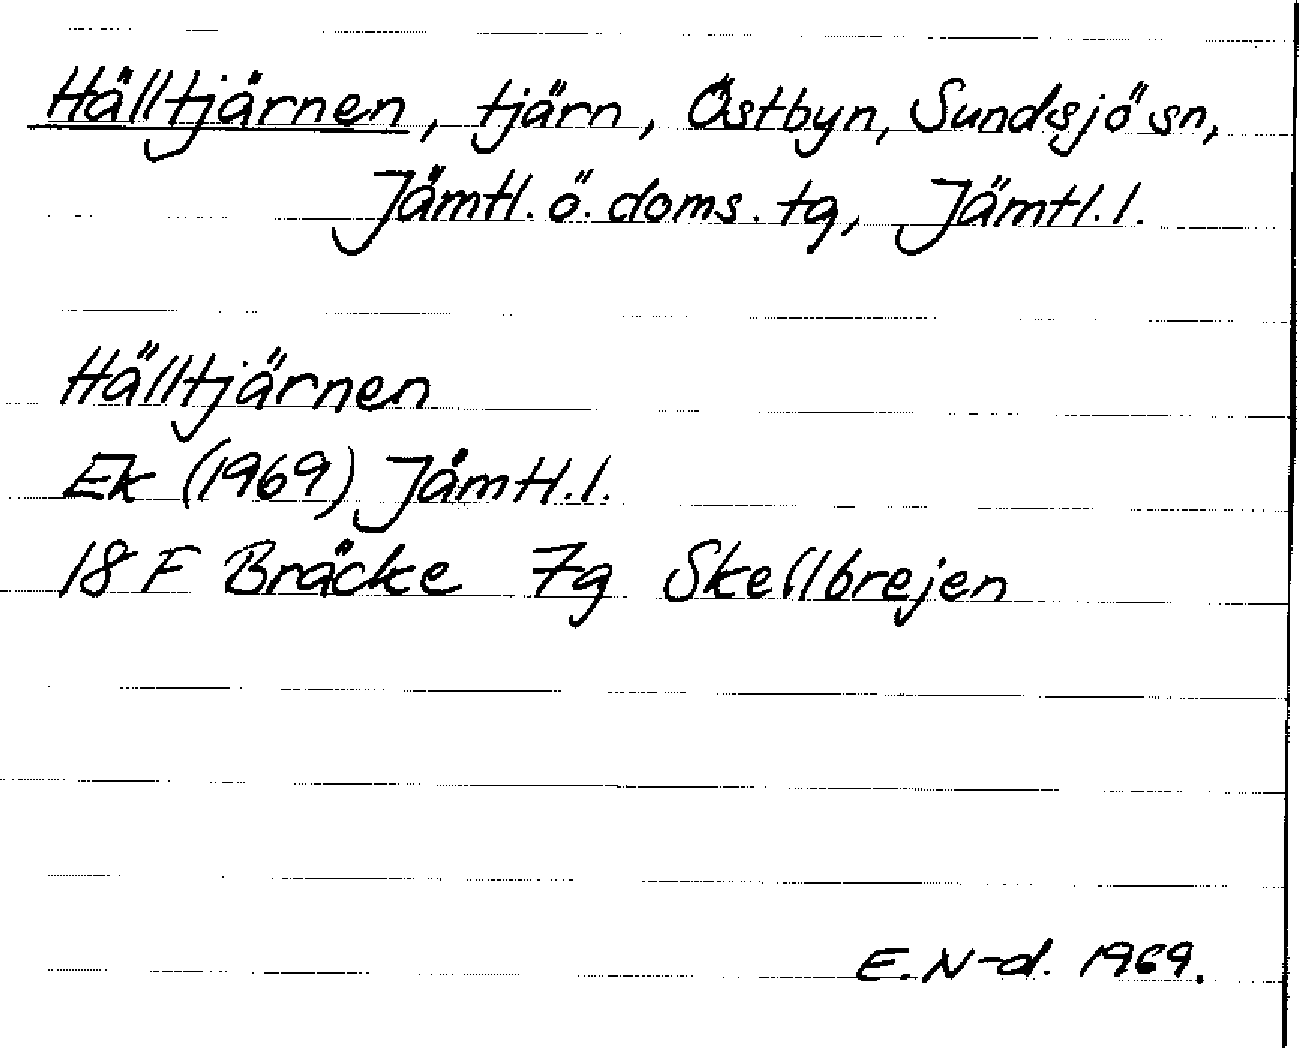 Hälltjärnen, tjärn, Östbyn, Sundsjö sn,
Jämtl. ö. doms. tg, Jämtl. l.
Hälltjärnen
Ek (1969) Jämtl. l.
18 F Bräcke 7g Skellbrejen
E. N-d. 1969.